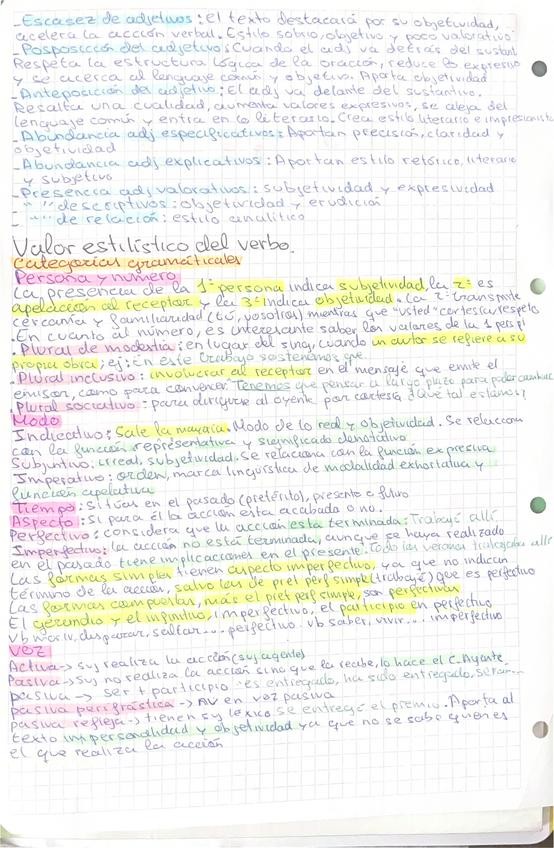 _Escasez de adjetivos: el texto destacará por su objetividad,
acelera la acción verbal. Estilo sobrio, objetivo y poco valorativo
_Posposición del adjetivo: Cuando el adj va detrás del sustant
Respeta la estructura lógica de la oración, reduce lo expresivo
y se acerca al lenguaje común y objetivo. Aporta objetividad
_Anteposición del adjetivo: El adj va delante del sustantivo.
Resalta una cualidad, aumenta valores expresivos, se aleja del
lenguaje común y entra en lo literario. Crea estilo literario e impresionista
_Abundancia adj especificativos: Aportan precisión, claridad y
objetividad
_Abundancia adj explicativos: Aportan estilo retórico, literario
y subjetivo
_Presencia adj valorativos: subjetividad y expresividad
_ " " descriptivos: objetividad y erudición
_ " " de relación: estilo analítico
Valor estilístico del verbo.
Categorías gramáticales
Persona y número
La presencia de la 1ª persona indica subjetividad, la 2ª es
apelación al receptor y la 3ª indica objetividad. La 2ª transmite
cercanía y familiaridad (tú, vosotros) mientras que "usted" cortesía, respeto
. En cuanto al número, es interesante saber los valores de la 1 pers pl
. Plural de modestia: en lugar del sing, cuando un autor se refiere a su
propia obra; ej: En este trabajo sostenemos que
. Plural inclusivo: involucrar al receptor en el mensaje que emite el
emisor, como para convencer. Tenemos que pensar a largo plazo para poder cambiar
. Plural sociativo: para dirigirse al oyente por cortesía ¿Qué tal estamos?
Modo
Indicativo: Sale la mayoría. Modo de lo real y objetividad. Se relaciona
con la función representativa y significado denotativo
Subjuntivo: irreal, subjetividad. Se relaciona con la función expresiva
Imperativo: orden, marca lingüística de modalidad exhortativa y
función apelativa
Tiempo: sitúas en el pasado (pretérito), presente o futuro
Aspecto: Si para él la acción esta acabada o no.
Perfectivo: considera que la acción esta terminada: Trabajé allí
Imperfectivo: la acción no está terminada, aunque se haya realizado
en el pasado tiene implicaciones en el presente. Todos los veranos trabajaba allí
Las formas simples tienen aspecto imperfectivo, ya que no indican
término de la acción, salvo las de pret perf simple (trabajé) que es perfectivo
Las formas compuestas, más el pret perf simple, son perfectivas
El gerundio y el infinitivo, imperfectivo, el participio en perfectivo
Vb morir, disparar, saltar... perfectivo. vb saber, vivir... imperfectivo
Voz
Activa -> suj realiza la acción (suj agente)
Pasiva -> Suj no realiza la acción sino que la recibe, lo hace el C. Agente.
pasiva -> ser + participio es entregado, ha sido entregado,
pasiva perifrástica -> AV en voz pasiva
pasiva refleja -> tienen suj léxico se entregó el premio. Aporta al
texto impersonalidad y objetividad ya que no se sabe quien es
el que realiza la acción